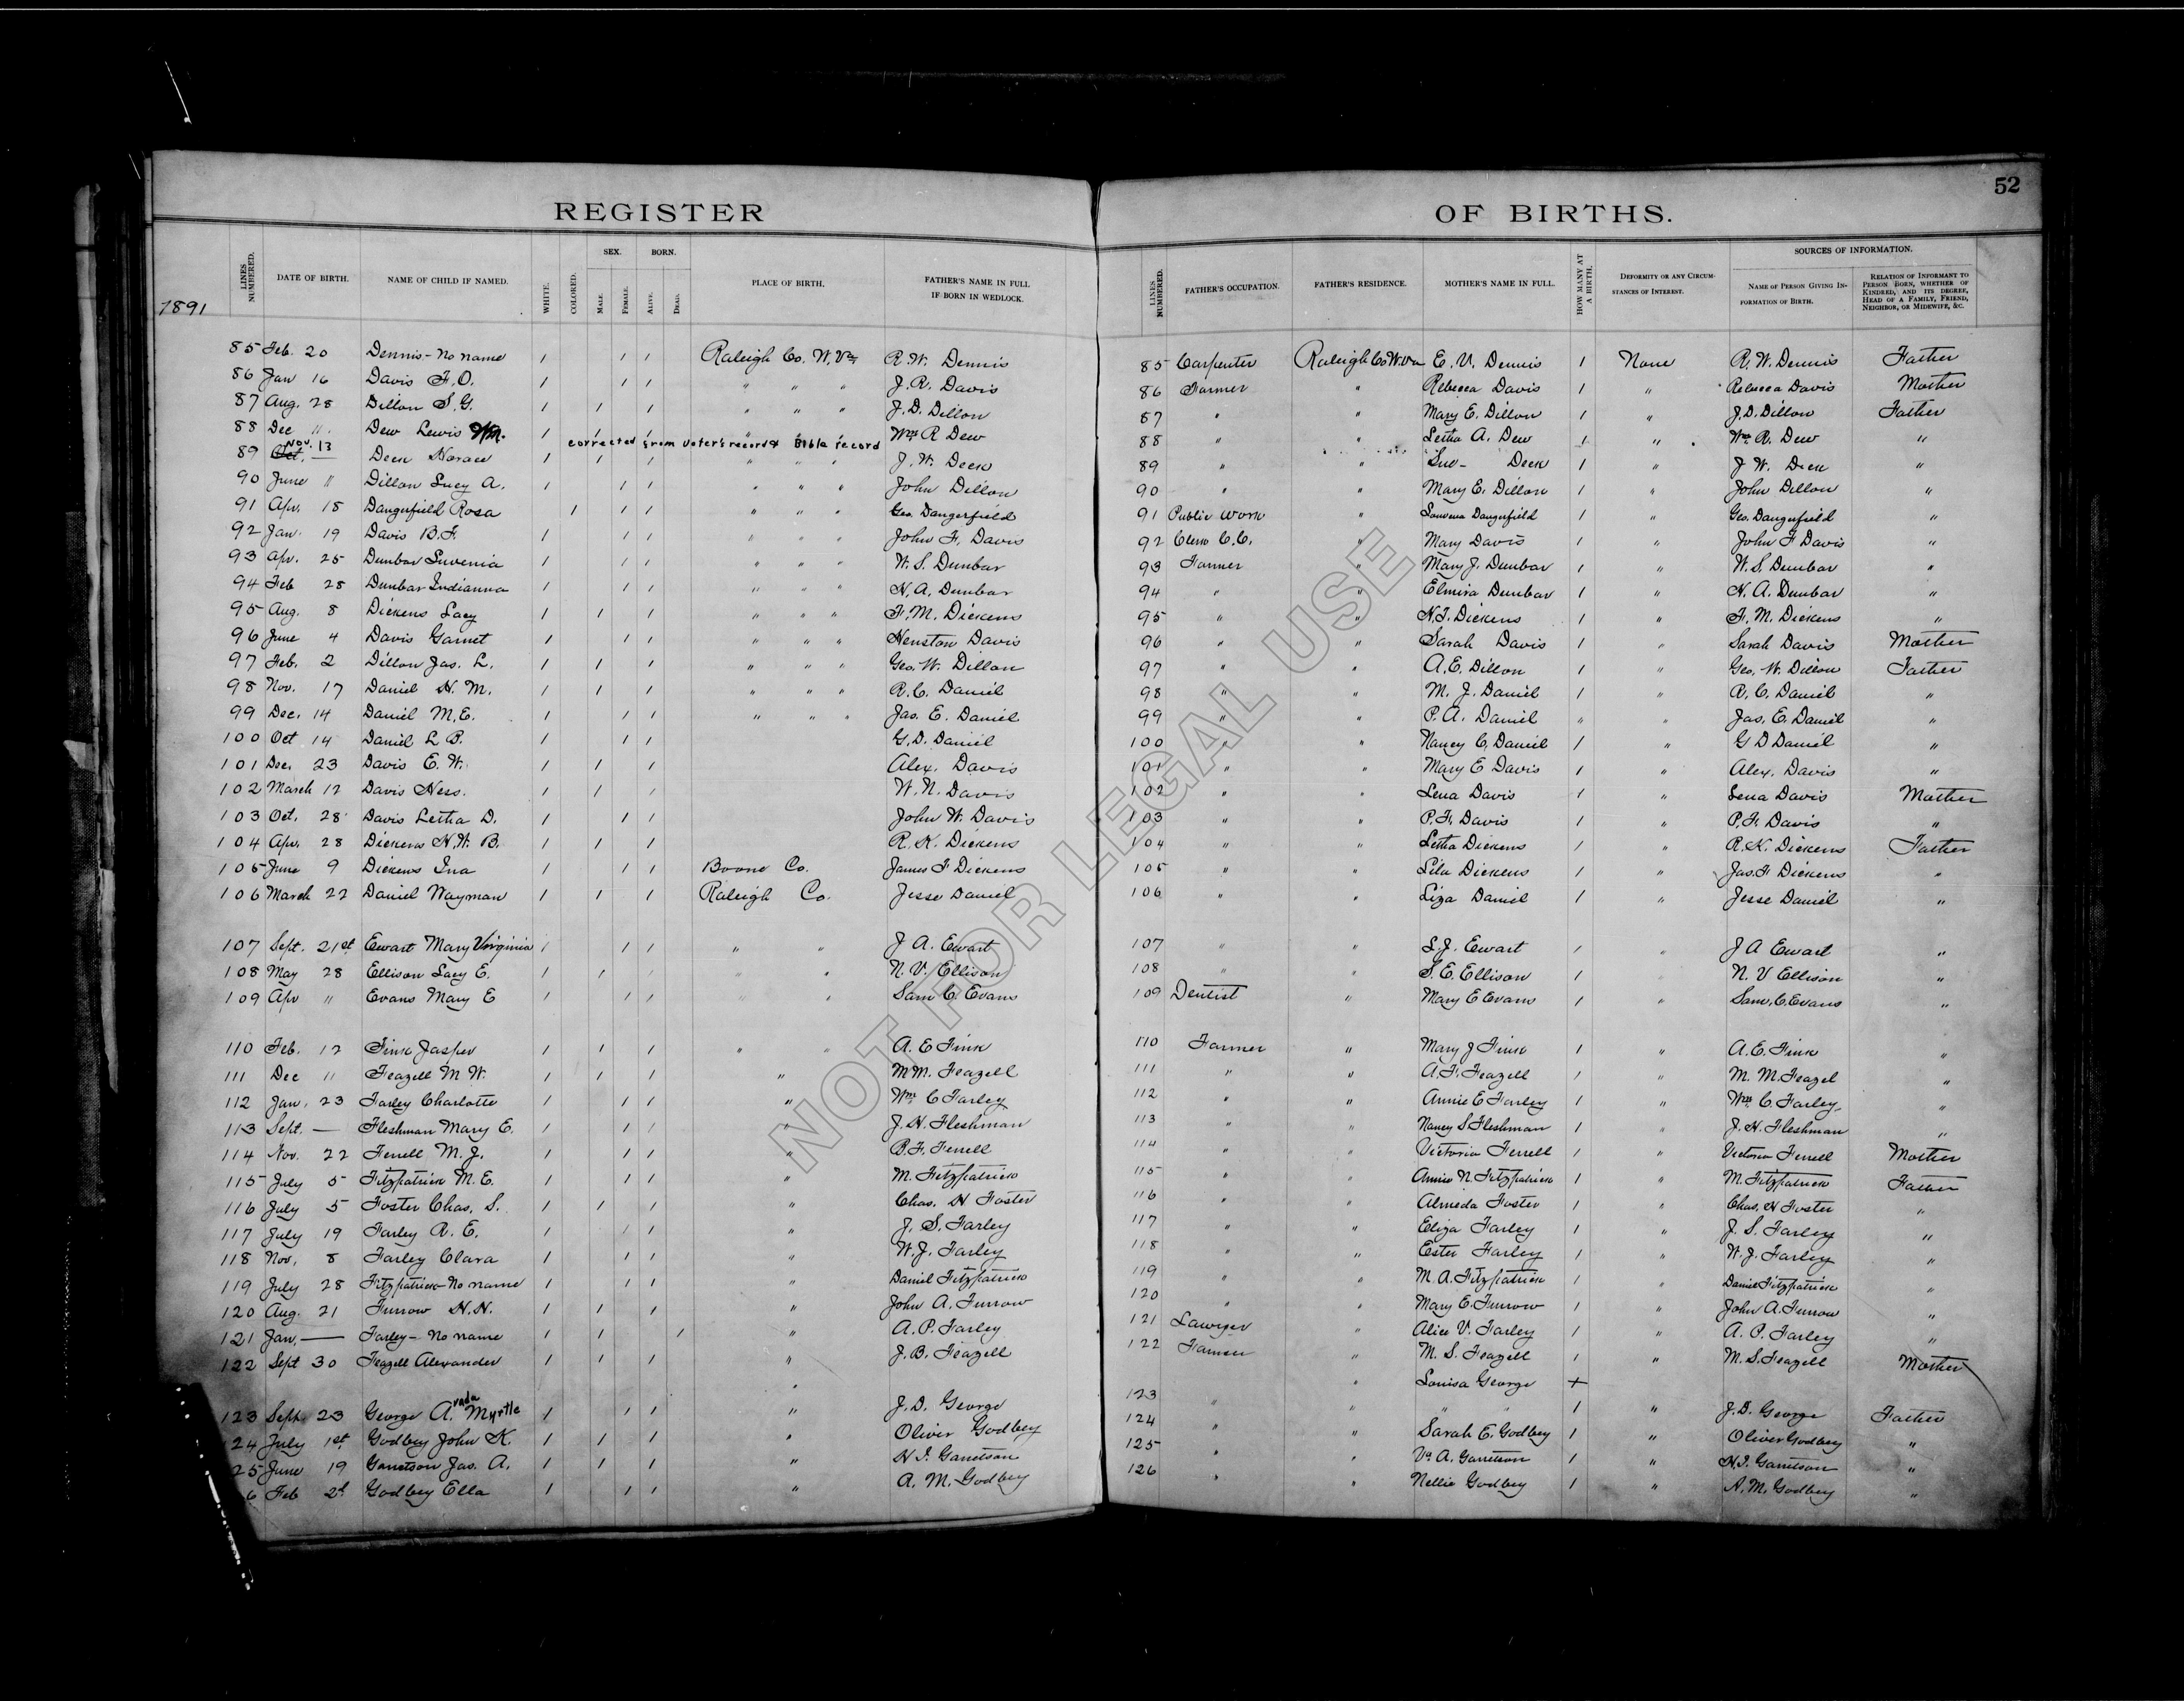 52
REGISTER OF BIRTHS.
SEX. BORN. SOURCES OF INFORMATION.
LINES NUMBERED. DATE OF BIRTH. NAME OF CHILD IF NAMED. WHITE. COLORED. MALE. FEMALE. ALIVE. DEAD. PLACE OF BIRTH. FATHER'S NAME IN FULL IF BORN IN WEDLOCK. LINES NUMBERED. FATHER'S OCCUPATION. FATHER'S RESIDENCE. MOTHER'S NAME IN FULL. HOW MANY AT A BIRTH. DEFORMITY OR ANY CIRCUMSTANCES OF INTEREST. NAME OF PERSON GIVING INFORMATION OF BIRTH. RELATION OF INFORMANT TO PERSON BORN, WHETHER OF KINDRED, AND ITS DEGREE, HEAD OF A FAMILY, FRIEND, NEIGHBOR, OR MIDWIFE, &C.
1891
85 Feb. 20 Dennis - No name 1 1 1 Raleigh Co. W. Va R. W. Dennis 85 Carpenter Raleigh Co W. Va E. V. Dennis 1 None R. W. Dennis Father
86 Jan 16 Davis F. O. 1 1 1 " " " J. R. Davis 86 Farmer " Rebecca Davis 1 " Rebecca Davis Mother
87 Aug. 28 Dillon S. G. 1 1 1 " " " J. D. Dillon 87 " " Mary E. Dillon 1 " J. D. Dillon Father
88 Dec 11 Dew Lewis Wm. 1 1 1 " " " Wm R Dew 88 " " Letha A. Dew 1 " Wm R. Dew "
corrected from voter's record & Bible record
89 Oct. Nov. 13 Deck Horace 1 1 1 " " " J. W. Deck 89 " " Sue - Deck 1 " J W. Deck "
90 June 11 Dillon Lucy A. 1 1 1 " " " John Dillon 90 " " Mary E. Dillon 1 " John Dillon "
91 Apr. 18 Dangerfield Rosa 1 1 1 " " " Geo. Dangerfield 91 Public Work " Dangerfield 1 " Geo. Dangerfield "
92 Jan. 19 Davis B. F. 1 1 1 " " " John F. Davis 92 Clerk C. C. " Mary Davis 1 " John F Davis "
93 Apr. 25 Dunbar Luvenia 1 1 1 " " " W. S. Dunbar 93 Farmer " Mary J. Dunbar 1 " W. S. Dunbar "
94 Feb 28 Dunbar Indianna 1 1 1 " " " H. A. Dunbar 94 " " Elmira Dunbar 1 " H. A. Dunbar "
95 Aug. 8 Dickens Lacy 1 1 1 " " " F. M. Dickens 95 " " N. J. Dickens 1 " F. M. Dickens "
96 June 4 Davis Garnet 1 1 1 " " " Henston Davis 96 " " Sarah Davis 1 " Sarah Davis Mother
97 Feb. 2 Dillon Jas. L. 1 1 1 " " " Geo. W. Dillon 97 " " A. E. Dillon 1 " Geo. W. Dillon Father
98 Nov. 17 Daniel H. M. 1 1 1 " " " R. C. Daniel 98 " " M. J. Daniel 1 " R. C. Daniel "
99 Dec. 14 Daniel M. E. 1 1 1 " " " Jas. E. Daniel 99 " " P. A. Daniel " " Jas. E. Daniel "
100 Oct 14 Daniel L P. 1 1 1 G. D. Daniel 100 " " Nancy C. Daniel 1 " G D Daniel "
101 Dec. 23 Davis E. W. 1 1 1 Alex. Davis 101 " " Mary E Davis 1 " Alex. Davis "
102 March 12 Davis Hess. 1 1 1 W. N. Davis 102 " " Lena Davis 1 " Lena Davis Mother
103 Oct. 28 Davis Letha D. 1 1 1 John W. Davis 103 " " P. F. Davis 1 " P. F. Davis "
104 Apr. 28 Dickens H. W. B. 1 1 1 R. K. Dickens 104 " " Letha Dickens 1 " R. K. Dickens Father
105 June 9 Dickens Ina 1 1 1 Boone Co. James F Dickens 105 " " Lila Dickens 1 " Jas. F Dickens "
106 March 22 Daniel Wayman 1 1 1 Raleigh Co. Jesse Daniel 106 " " Liza Daniel 1 " Jesse Daniel "
107 Sept. 21st Ewart Mary Virginia 1 1 1 " " J A. Ewart 107 " " L. J. Ewart 1 " J A Ewart "
108 May 28 Ellison Lacy E. 1 1 1 " " N. V. Ellison 108 " " S. E. Ellison 1 N. V Ellison "
109 Apr 11 Evans Mary E 1 1 1 " " Sam C. Evans 109 Dentist " Mary E Evans 1 " Sam. C. Evans "
110 Feb. 12 Fink Jasper 1 1 1 " " A. E Fink 110 Farmer " Mary J Fink 1 " A. E. Fink "
111 Dec 11 Feazell M W. 1 1 1 " M M. Feazell 111 " " A. F. Feazell 1 " M. M. Feazel "
112 Jan. 23 Farley Charlotte 1 1 1 " Wm C Farley 112 " " Annie E Farley 1 " Wm C. Farley "
113 Sept. — Fleshman Mary E. 1 1 1 " J. H. Fleshman 113 " " Nancy S Fleshman 1 " J. H. Fleshman "
114 Nov. 22 Ferrell M. J. 1 1 1 " P. F. Ferrell 114 " " Victoria Ferrell 1 " Victoria Ferrell Mother
115 July 5 Fitzpatrick M. E. 1 1 1 " M. Fitzpatrick 115 " " Annie N. Fitzpatrick 1 " M. Fitzpatrick Father
116 July 5 Foster Chas. S. 1 1 1 " Chas. H Foster 116 " " Almeda Foster 1 " Chas. H Foster "
117 July 19 Farley R. E. 1 1 1 " J. S. Farley 117 " " Eliza Farley 1 " J. S. Farley "
118 Nov. 8 Farley Clara 1 1 1 " W. J. Farley 118 " " Ester Farley 1 " W. J. Farley "
119 July 28 Fitzpatrick - No name 1 1 1 " Daniel Fitzpatrick 119 " " M. A. Fitzpatrick 1 " Daniel Fitzpatrick "
120 Aug. 21 Furrow H. H. 1 1 1 " John A. Furrow 120 " " Mary E. Furrow 1 " John A. Furrow "
121 Jan. — Farley - No name 1 1 1 " A. P. Farley 121 Lawyer " Alice V. Farley 1 " A. P. Farley "
122 Sept 30 Feazell Alexander 1 1 1 " J. B. Feazell 122 Farmer " M. S. Feazell 1 " M. S. Feazell Mother
" " Louisa George +
123 Sept. 23 George A.vada Myrtle 1 1 1 " J. D. George 123 " " " " 1 " J. D. George Father
24 July 1st Godbey John K. 1 1 1 " Oliver Godbey 124 " " Sarah E. Godbey 1 " Oliver Godbey "
25 June 19 Garretson Jas. A. 1 1 1 " H I. Garretson 125 " " Va. A. Garretson 1 " H. I. Garretson "
6 Feb 2d Godbey Ella 1 1 1 " A. M. Godbey 126 " " Nellie Godbey 1 " A. M. Godbey "
NOT FOR LEGAL USE